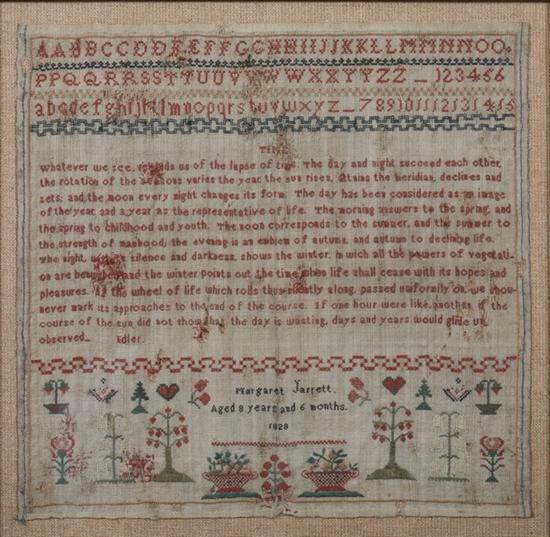 AABBCCDDEEFFGGHHIIJJKKLLMMNNOO
PPQQRRSSTTUUVVWWXXYYZZ_123456
abcdefghijklmnopqrstuvwxyz_789101112131415
TIME
Whatever we see, reminds us of the lapse of time. The day and night succeed each other,
the rotation of the seasons varies the year, the sun rises, attains the meridian, declines and
sets; and the moon every night changes its form. The day has been considered as an image
of the year, and a year as the representative of life. The morning answers to the spring, and
the spring to childhood and youth. The noon corresponds to the summer, and the summer to
the strength of manhood; the evening is an emblem of autumn, and autumn to declining life.
The night, with its silence and darkness, shows the winter, in wich all the powers of vegetati-
on are and the winter points out the time when life shall cease with its hopes and
pleasures. If the wheel of life which rolls thus silently along, passed uniformly on, we should
never mark its approaches to the end of the course. If one hour were like another, if the
course of the sun did not show that the day is wasting, days and years would glide un
observed_ Idler.
Margaret Jarrett.
Aged 8 years and 6 months.
1828